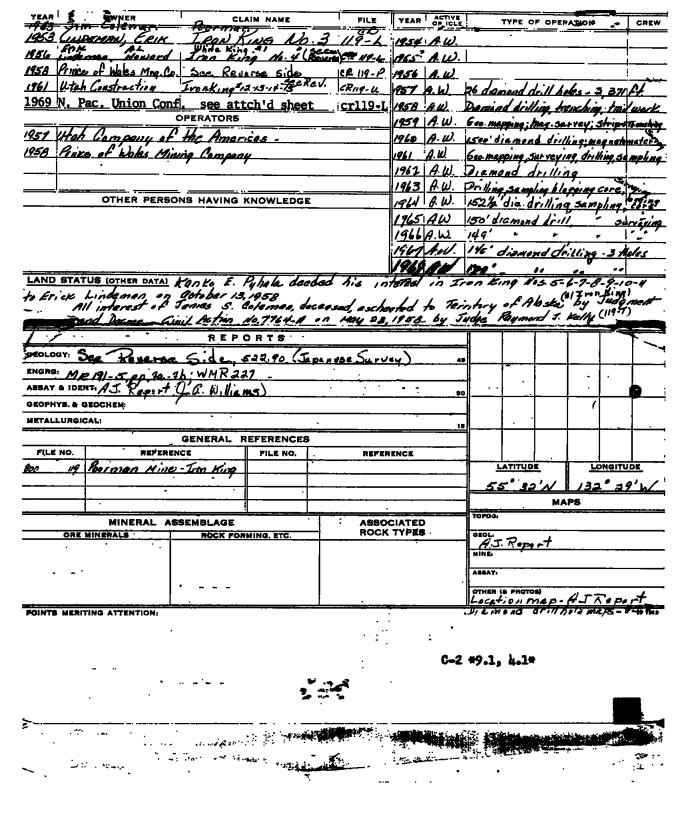 YEAR OWNER CLAIM NAME FILE
Jim Coleman Poorman
1953 LINDEMAN, ERIK IRON KING No. 3 119-L
1956 Lindeman, Howard Iron King No. 4
1958 Prince of Wales Mng. Co. See Reverse side CR 119-P
1961 Utah Construction Iron King CR119-U
1969 N. Pac. Union Conf. see attch'd sheet cr119-L
OPERATORS
1957 Utah Company of the Americas -
1958 Prince of Wales Mining Company
OTHER PERSONS HAVING KNOWLEDGE
YEAR ACTIVE OR IDLE TYPE OF OPERATION CREW
1954 A.W.
1955 A.W.
1956 A.W.
1957 A.W. 26 diamond drill holes - 3,371 ft
1958 A.W. Diamond drilling, trenching, trail work
1959 A.W. Geo. mapping; mag. survey;
1960 A.W. 1500' diamond drilling; magnetometer
1961 A.W. Geo. mapping, surveying, drilling, sampling
1962 A.W. Diamond drilling
1963 A.W. Drilling, sampling & logging core,
1964 A.W. 152½' dia. drilling, sampling,
1965 A.W. 150' diamond drill, " surveying
1966 A.W. 149' " "
1967 A.W. 146' diamond drilling - 3 holes
1968 A.W. " "
LAND STATUS (OTHER DATA) Kanko E. Pyhala deeded his interest in Iron King Nos. 5-6-7-8-9-10-4
to Erick Lindeman on October 13, 1958
All interest of James S. Coleman, deceased, escheated to Territory of Alaska by Judgment
and Decree - Civil Action No. 7764-A on May 23, 1958 by Judge Raymond J. Kelly (119-T)
REPORTS
GEOLOGY: See Reverse Side, 522.90 (Japanese Survey) 45
ENGRG: MR 191-5, pp. 2a-2b; WMR 227
ASSAY & IDENT: A.J. Report (J.A. Williams) 30
GEOPHYS. & GEOCHEM:
METALLURGICAL: 15
GENERAL REFERENCES
FILE NO. REFERENCE FILE NO. REFERENCE
119 Poorman Mine - Iron King
LATITUDE LONGITUDE
55° 32' N 132° 29' W
MAPS
TOPOG:
GEOL: A.J. Report
MINE:
ASSAY:
OTHER (& PHOTOS)
Location map - A J Report
Diamond drill hole maps -
MINERAL ASSEMBLAGE ASSOCIATED ROCK TYPES
ORE MINERALS ROCK FORMING, ETC.
POINTS MERITING ATTENTION:
C-2 *9.1, 4.1*